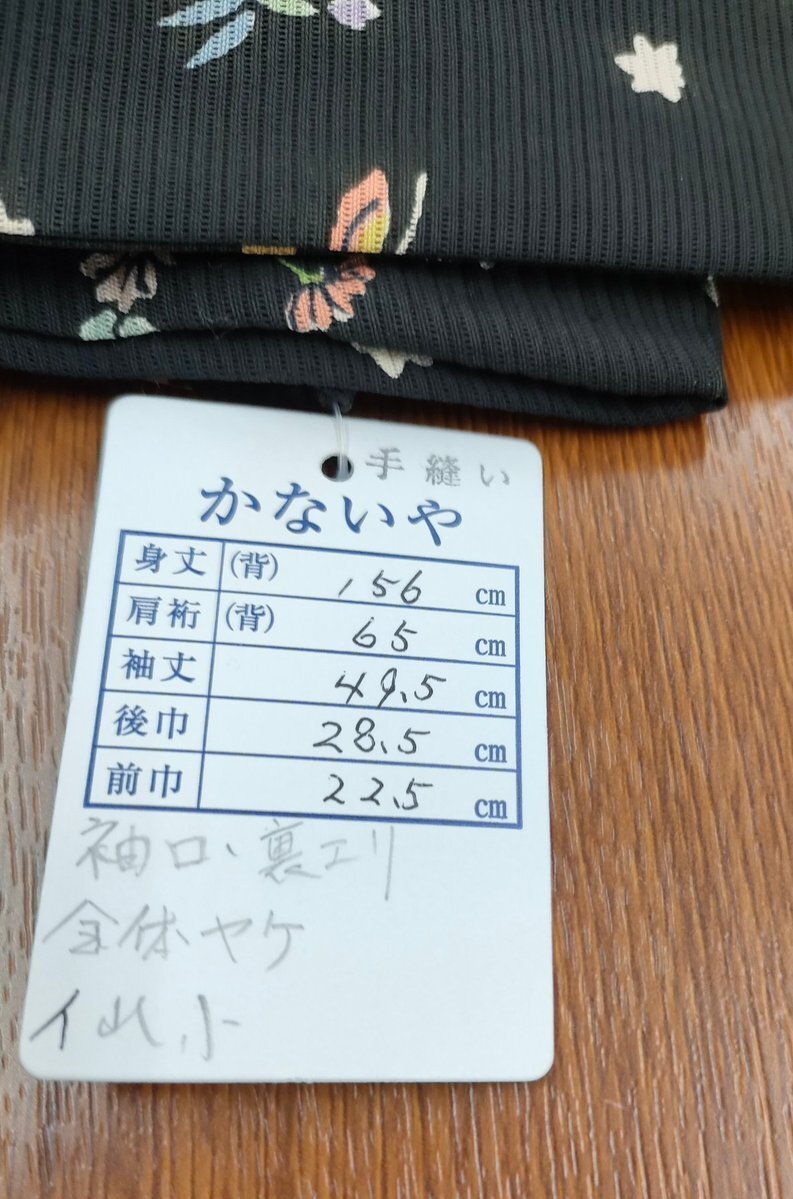 手縫い
かないや
身丈 (背) 156 cm
肩裄 (背) 65 cm
袖丈 49.5 cm
後巾 28.5 cm
前巾 22.5 cm
袖口、裏エリ
全体ヤケ
小